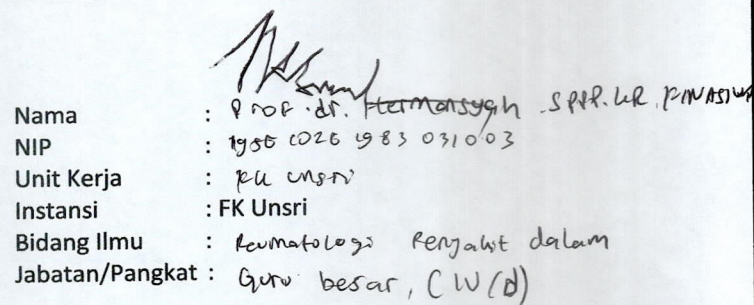 Nama : Prof. dr. Hermansyah. SPPP. KR. FINASIM
NIP : 1956 1026 1983 031003
Unit Kerja : FK unsri
Instansi : FK Unsri
Bidang Ilmu : Reumatologi Penyakit dalam
Jabatan/Pangkat : Guru besar, (IV/d)